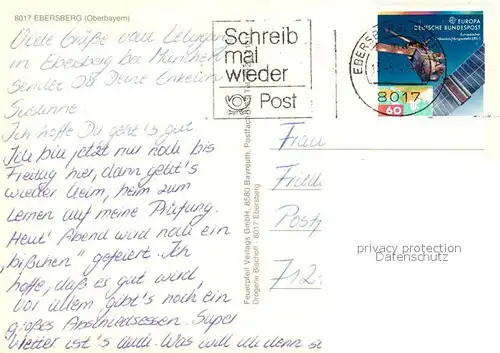 8017 EBERSBERG (Oberbayern)
Viele Grüße vom Lehrgang
in Ebersberg bei München
sendet Dir Deine Enkelin
Susanne
Ich hoffe Du geht's gut
Ich bin jetzt nur noch bis
Freitag hier, dann geht's
wieder heim, heim zum
Lernen auf meine Prüfung.
Heut' Abend wird noch ein
"bißchen" gefeiert. Ich
hoffe, daß es gut wird,
vor allem gibt's noch ein
großes Abschiedsessen. Super
Wetter ist's auch. Was will ich denn
Schreib
mal
wieder
Post
EBERSBE
8017
EUROPA
DEUTSCHE BUNDESPOST
60
Feuerpfeil Verlags GmbH, 8580 Bayreuth, Postfach
Drogerie Bischoff - 8017 Ebersberg
Frau
Postf
712
privacy protection
Datenschutz